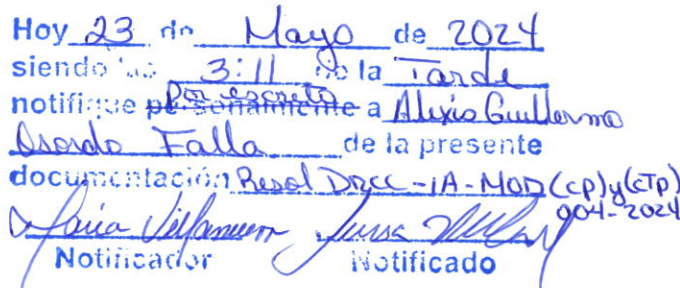 Hoy 23 de Mayo de 2024
siendo las 3:11 de la Tarde
notifique personalmente Por escrito a Alexis Guillermo
Falla de la presente
documentación Resol DRCC-IA-MOD(CP)y(CTP)
004-2024
Maria Villanueva
Notificador Notificado